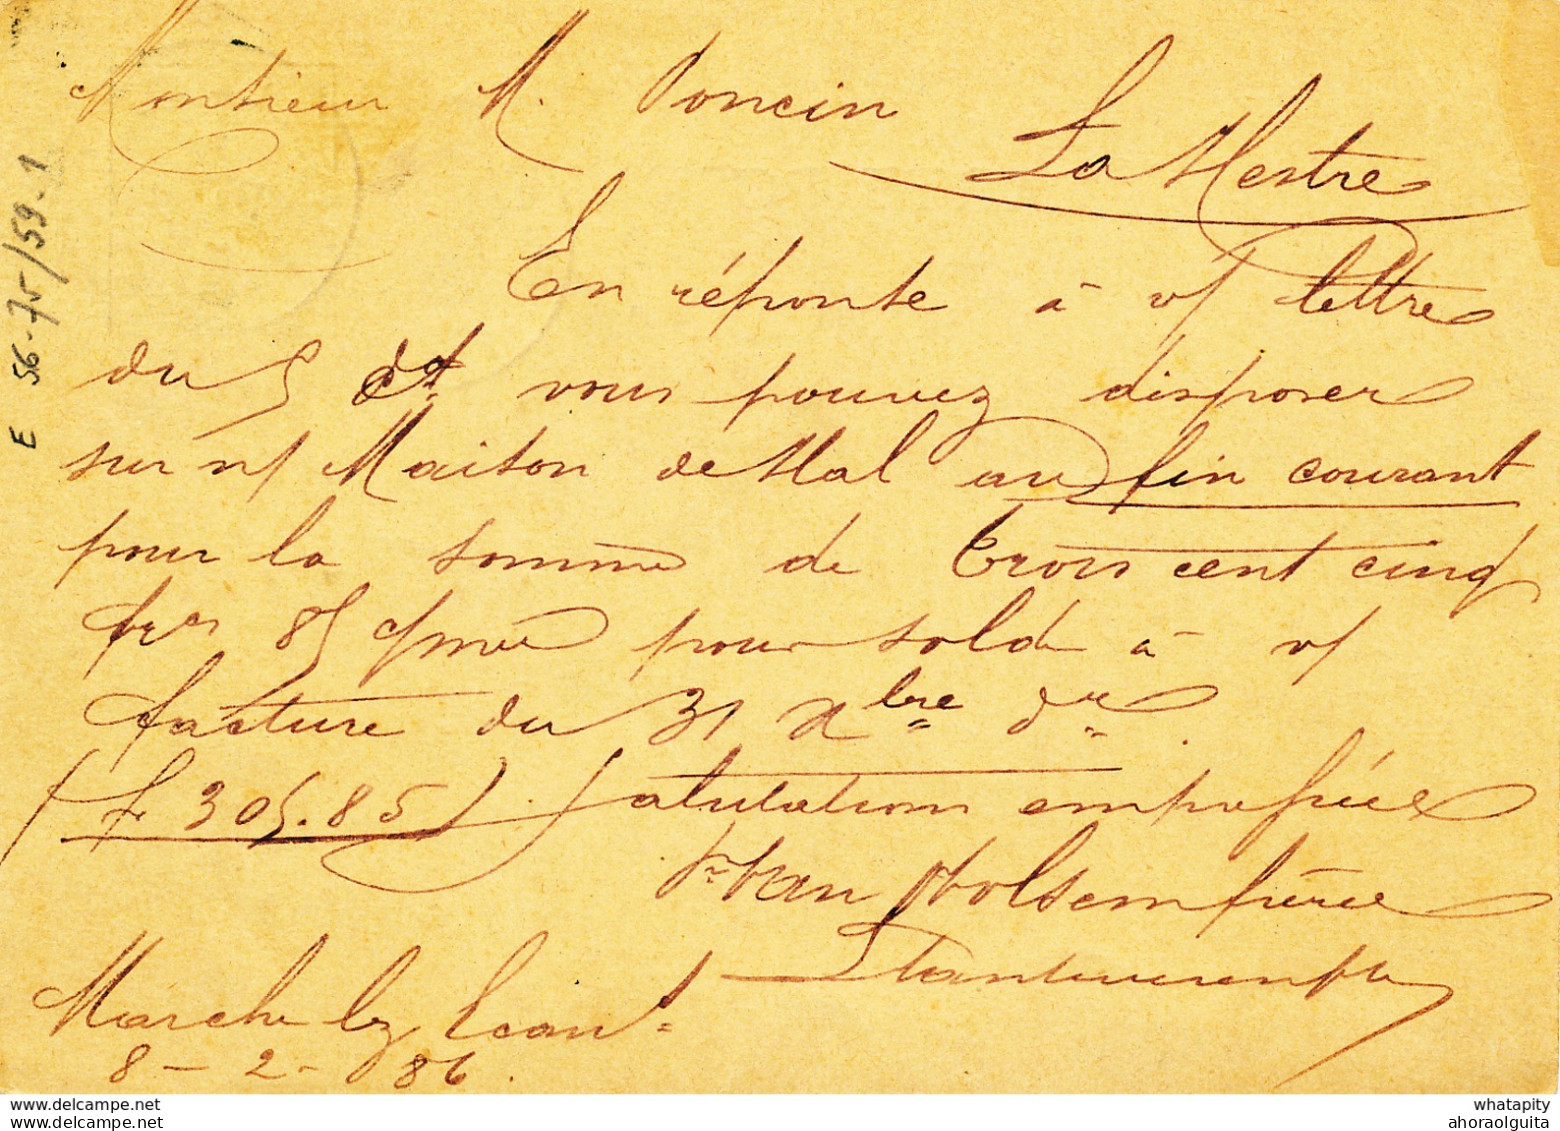 Monsieur M. Poncin
La Hestre
En réponse à v/ lettre
du 5 ct vous pouvez disposer
sur n/ Maison de Hal au fin courant
pour la somme de trois cent cinq
frcs 85 cmes pour solde à v/
facture du 31 Xbre dr.
(f 305.85) Salutations empressées
Van Holsem frères
Marche lez Ecaus.
8 - 2 - 86.
E 56-75/59-1
whatapity
ahoraolguita